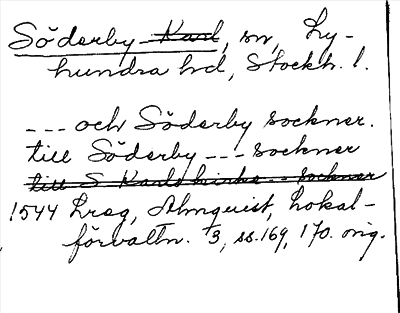 Söderby Karl, sn, Ly-
hundra hd, Stockh. l.
--- och Söderby socknar.
till Söderby --- socknar
till S Karls kirke -- socknar
1544 Lreg, Almquist, Lokal-
förvaltn. 3, ss. 169, 170. orig.